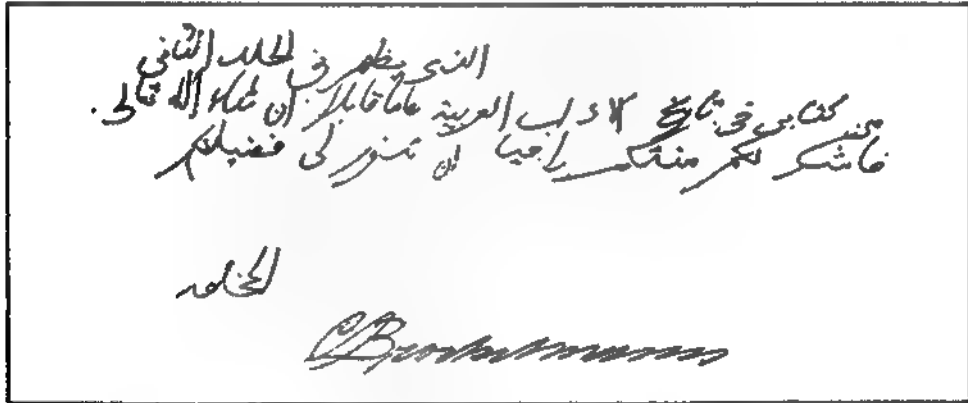 الذى يظهر فى الجلد الثانى
من كتابى فى تاريخ الاداب العربية عاما قابلا ان شاء الله تعالى .
فاشكر لكم منتكم راجيا ان فضلكم
المخلص
C Brockelmann